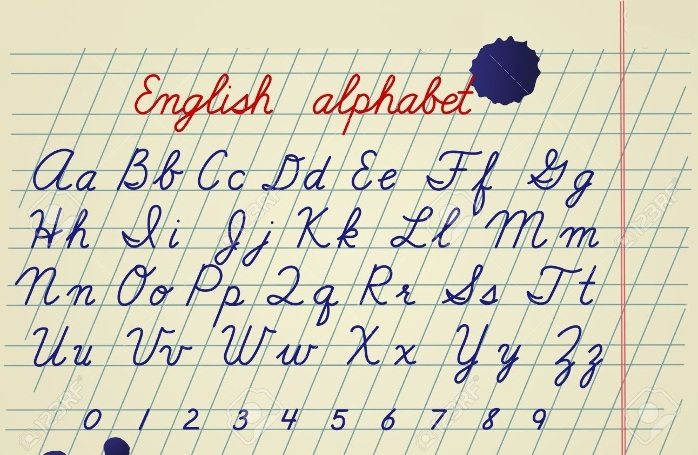 English alphabet
Aa Bb Cc Dd Ee Ff Gg
Hh Ii Jj Kk Ll Mm
Nn Oo Pp Qq Rr Ss Tt
Uu Vv Ww Xx Yy Zz
0 1 2 3 4 5 6 7 8 9
123RF